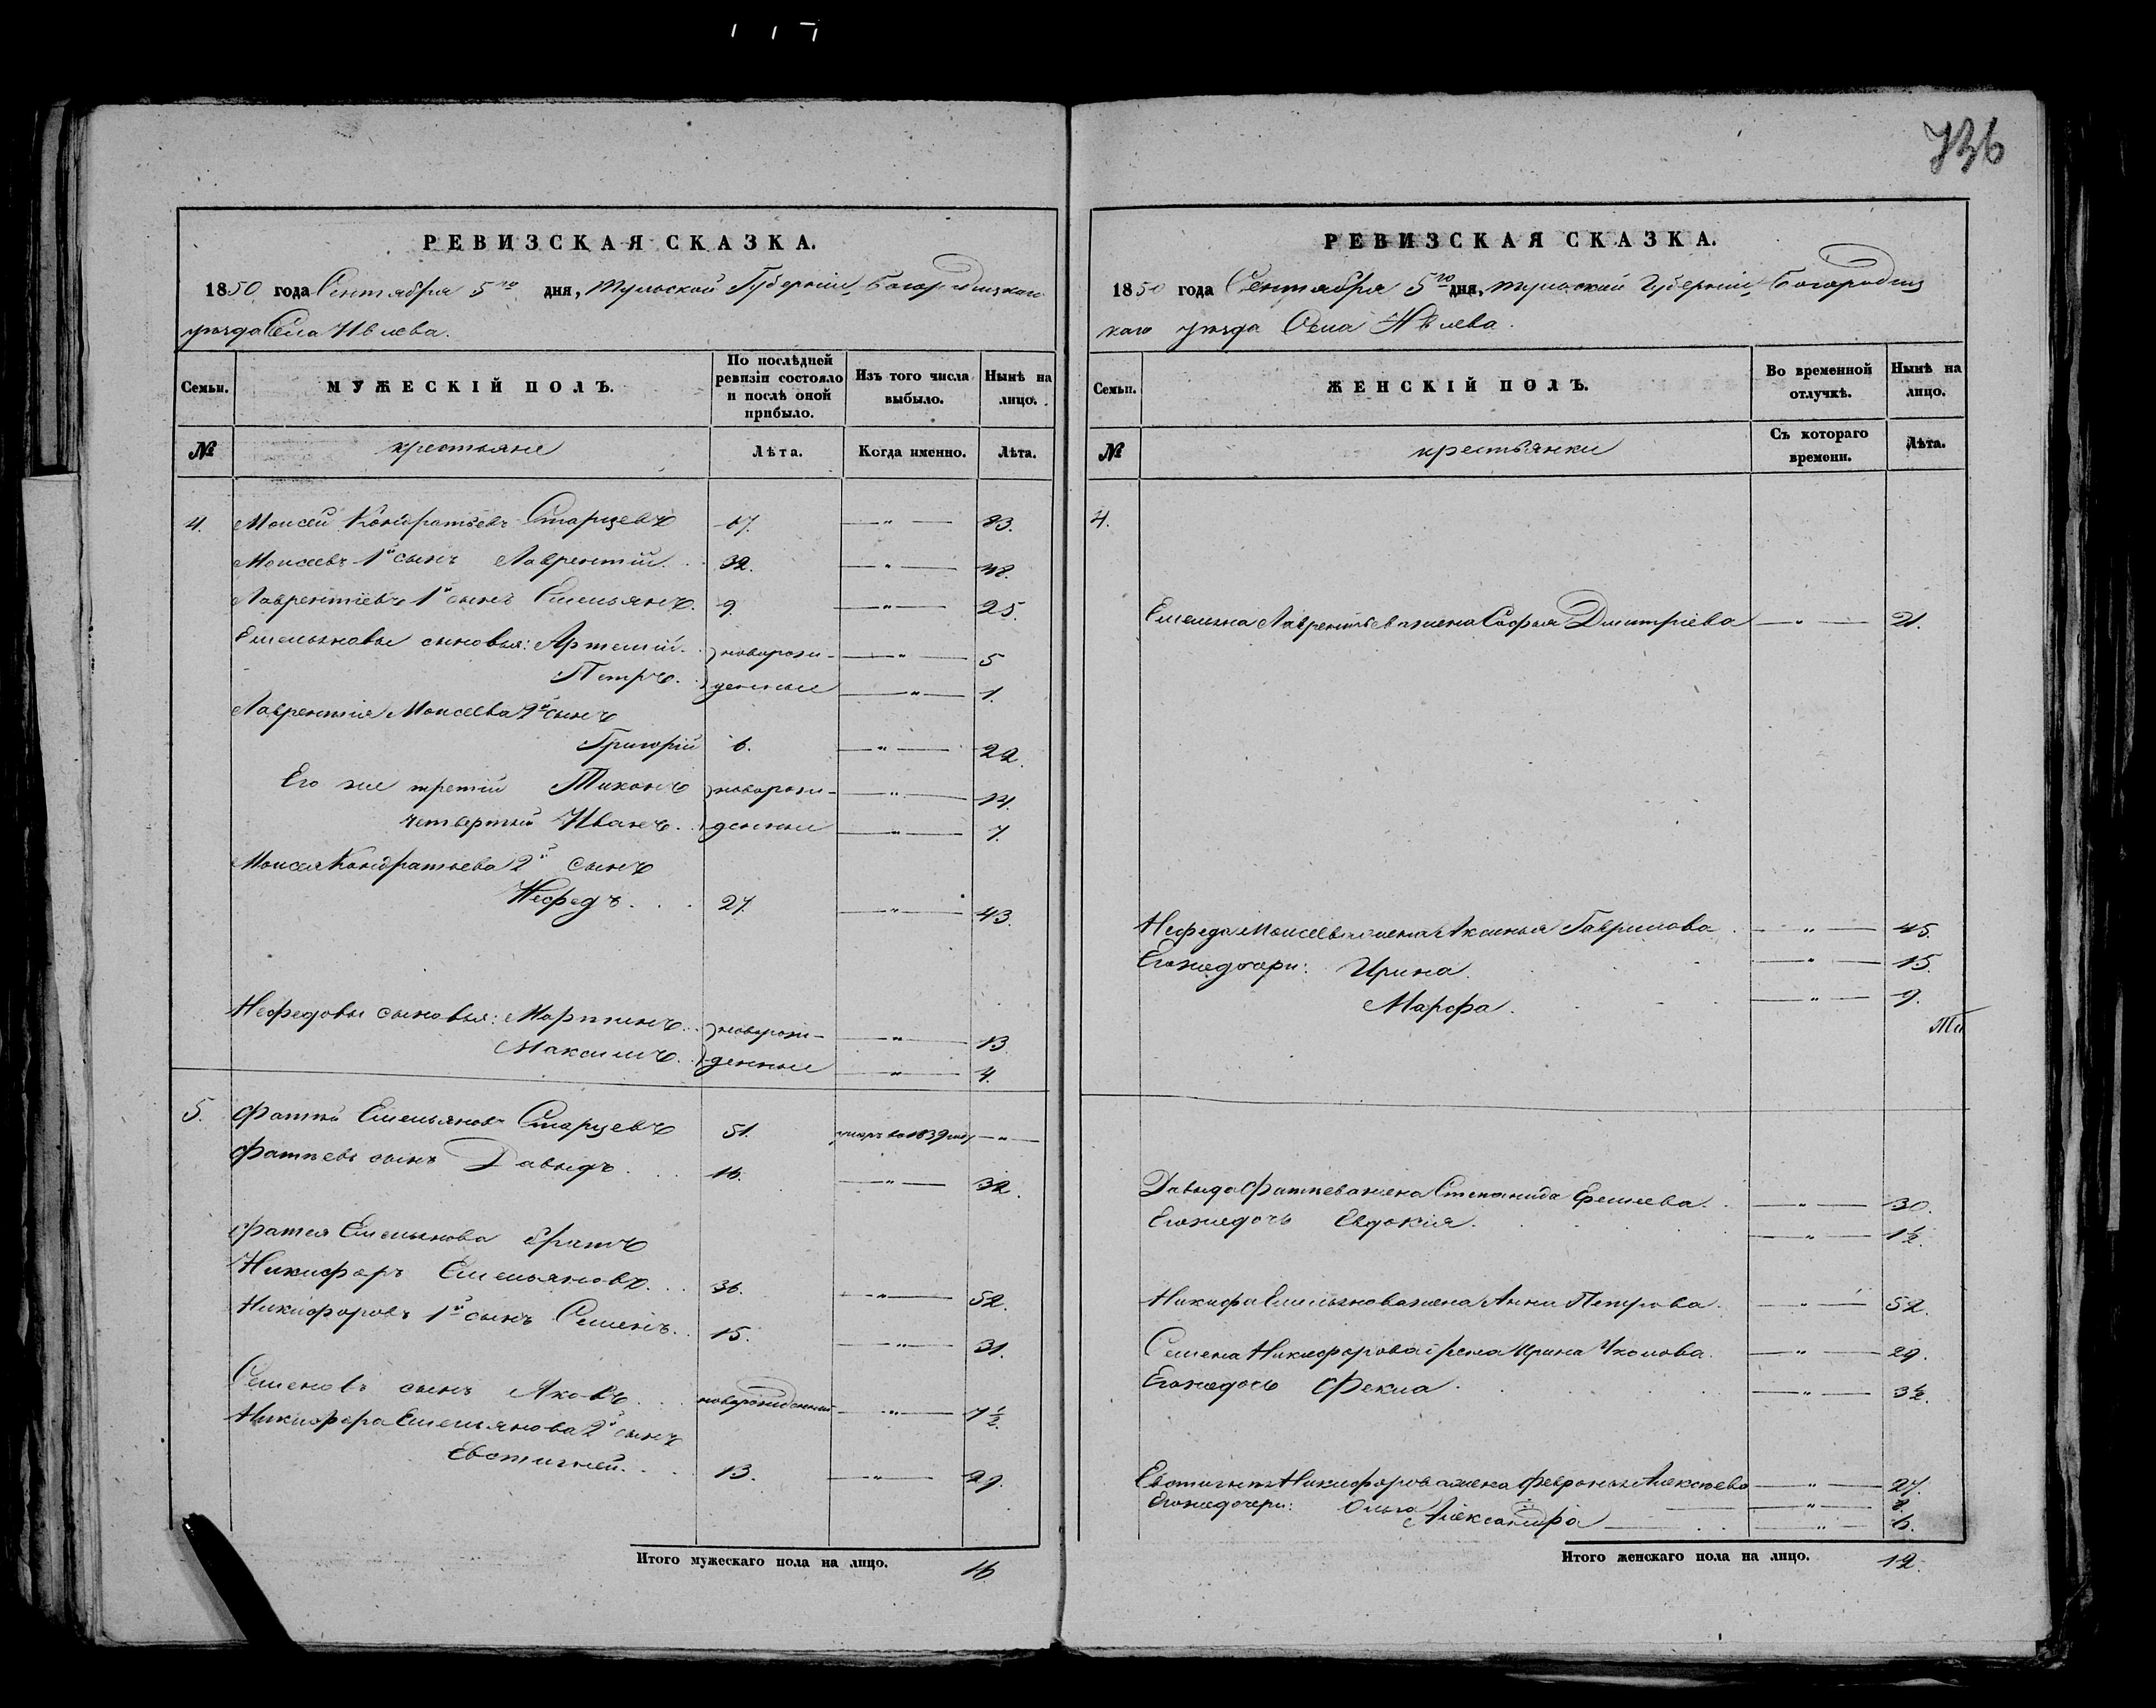 736
РЕВИЗСКАЯ СКАЗКА.
1850 года Сентября 5го дня, Тульской Губернии, Богородицкаго
уезда Села Ивлева.
Семьи.
МУЖЕСКІЙ ПОЛЪ.
По послѣдней ревизіи состояло и послѣ оной прибыло.
Изъ того числа выбыло.
Нынѣ на лицо.
№
крестьяне
Лѣта.
Когда именно.
Лѣта.
4. Моисей Кондратьевъ Старцевъ 67. — " — 83.
Моисеевъ 1й сынъ Лаврентій. 32. — " — 48.
Лаврентіевъ 1й сынъ Емельянъ. 9. — " — 25.
Емельяновы сыновья: Артемій. новорож- — " — 5
Петръ. денные — " — 1.
Лаврентія Моисеева 2й сынъ
Григорій 6. — " — 22.
Его же третій Тихонъ новорож- — " — 14.
четвертый Иванъ. денные — " — 7.
Моисея Кондратьева 2й сынъ
Нефедъ. 27. — " — 43.
Нефедовы сыновья: Мартинъ. новорож- — " — 13
Максимъ. денные — " — 4.
5. Фатей Емельяновъ Старцевъ 51. умеръ въ 1839 году — " —
Фатѣевъ сынъ Давыдъ. 16. — " — 32.
Фатея Емельянова братъ
Никифоръ Емельяновъ. 36. — " — 52.
Никифоровъ 1й сынъ Семенъ. 15. — " — 31.
Семеновъ сынъ Яковъ. новорожденный — " — 7 1/2.
Никифора Емельянова 2й сынъ
Евстигней. 13. — " — 29.
Итого мужескаго пола на лицо. 16
РЕВИЗСКАЯ СКАЗКА.
1850 года Сентября 5го дня, Тульской Губерніи, Богородиц
каго уезда Села Ивлева.
Семьи.
ЖЕНСКІЙ ПОЛЪ.
Во временной отлучкѣ.
Нынѣ на лицо.
№
крестьянки
Съ котораго времени.
Лѣта.
4.
Емельяна Лаврентьева жена Софья Дмитріева — " — 21.
Нефеда Моисеева жена Аксинья Гаврилова — " — 45.
Его же дочери: Ирина. — " — 15.
Марфа. — " — 9.
Давыда Фатѣева жена Степанида Еремеева. — " — 30.
Его же дочь Евдокия. — " — 1 1/2.
Никифора Емельянова жена Анна Петрова. — " — 52.
Семена Никифорова жена Ирина — " — 29.
Его же дочь Фекла. — " — 3 1/2.
Евстигнея Никифорова жена Февронья Алексѣева — " — 27.
Его же дочери: Ольга — " — 8.
Александра — " — 6.
Итого женскаго пола на лицо. 12.